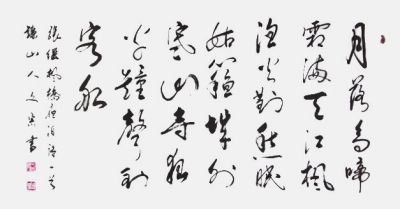 月落烏啼
霜滿天江楓
漁火對愁眠
姑蘇城外
寒山寺夜
半鐘聲到
客船
張繼楓橋夜泊詩一首
山人文書